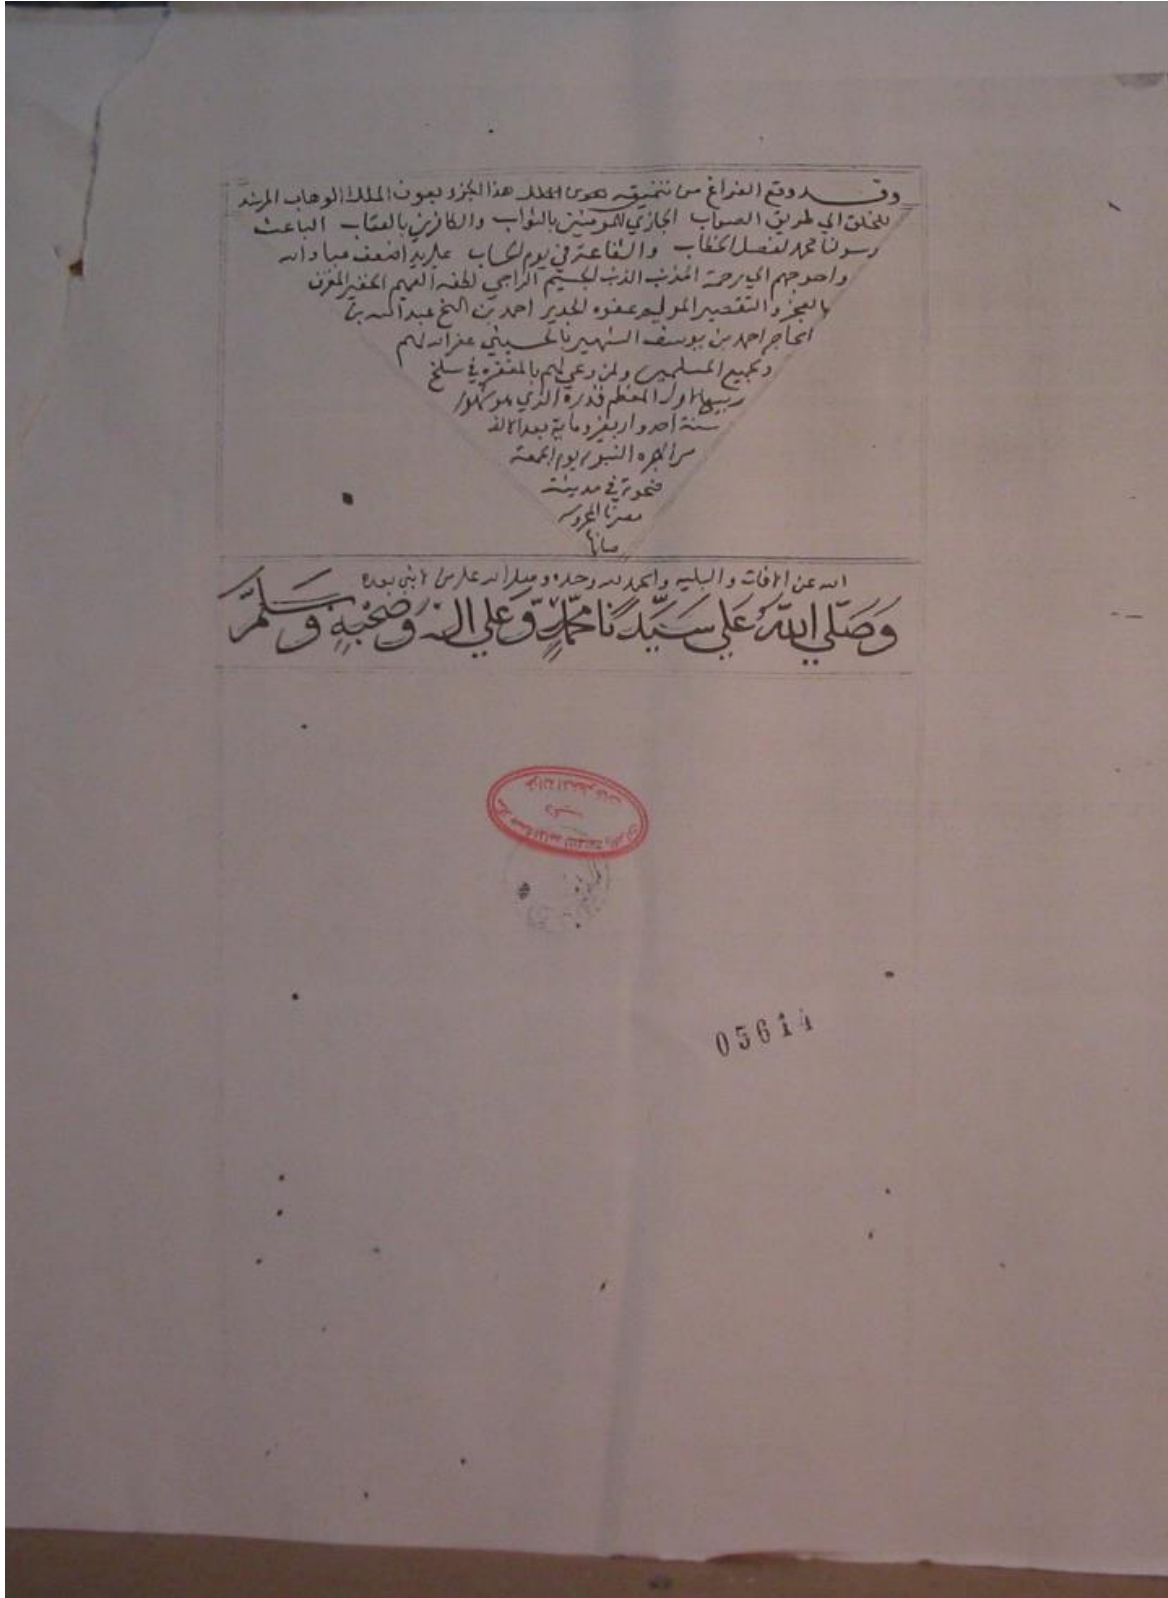 وقد وقع الفراغ من تنميق هذا الجزء بعون الملك الوهاب المرشد
للخلق الي طريق الصواب المجازي للمومنين بالثواب والكافرين بالعقاب الباعث
رسولنا محمد لفصل الخطاب والشفاعة في يوم الحساب علي يد اضعف عباد الله
واحوجهم الي رحمة الراجي لطفه العميم الحقير
بالعجز والتقصير عفوه الجدير احمد بن الشيخ عبد الله بن
الحاج احمد بن يوسف الشهير غفر الله لهم
ولجميع المسلمين ولمن دعي لهم بالمغفرة في سلخ
ربيع الاول المعظم قدره الذي هو
سنة احد واربعين وماية بعد الالف
من الهجره النبويه يوم الجمعة
ضحوة في مدينة
مصرنا المحروسه
صانها
الله عن الافات والبليه والحمد لله وحده وصلى الله على من لا نبي بعده
وَصَلّي اللّهُ عَلي سَيّدِنَا مُحَمّدٍ وَعَلي اله وَصَحْبِهِ وَسَلمَّ
05614